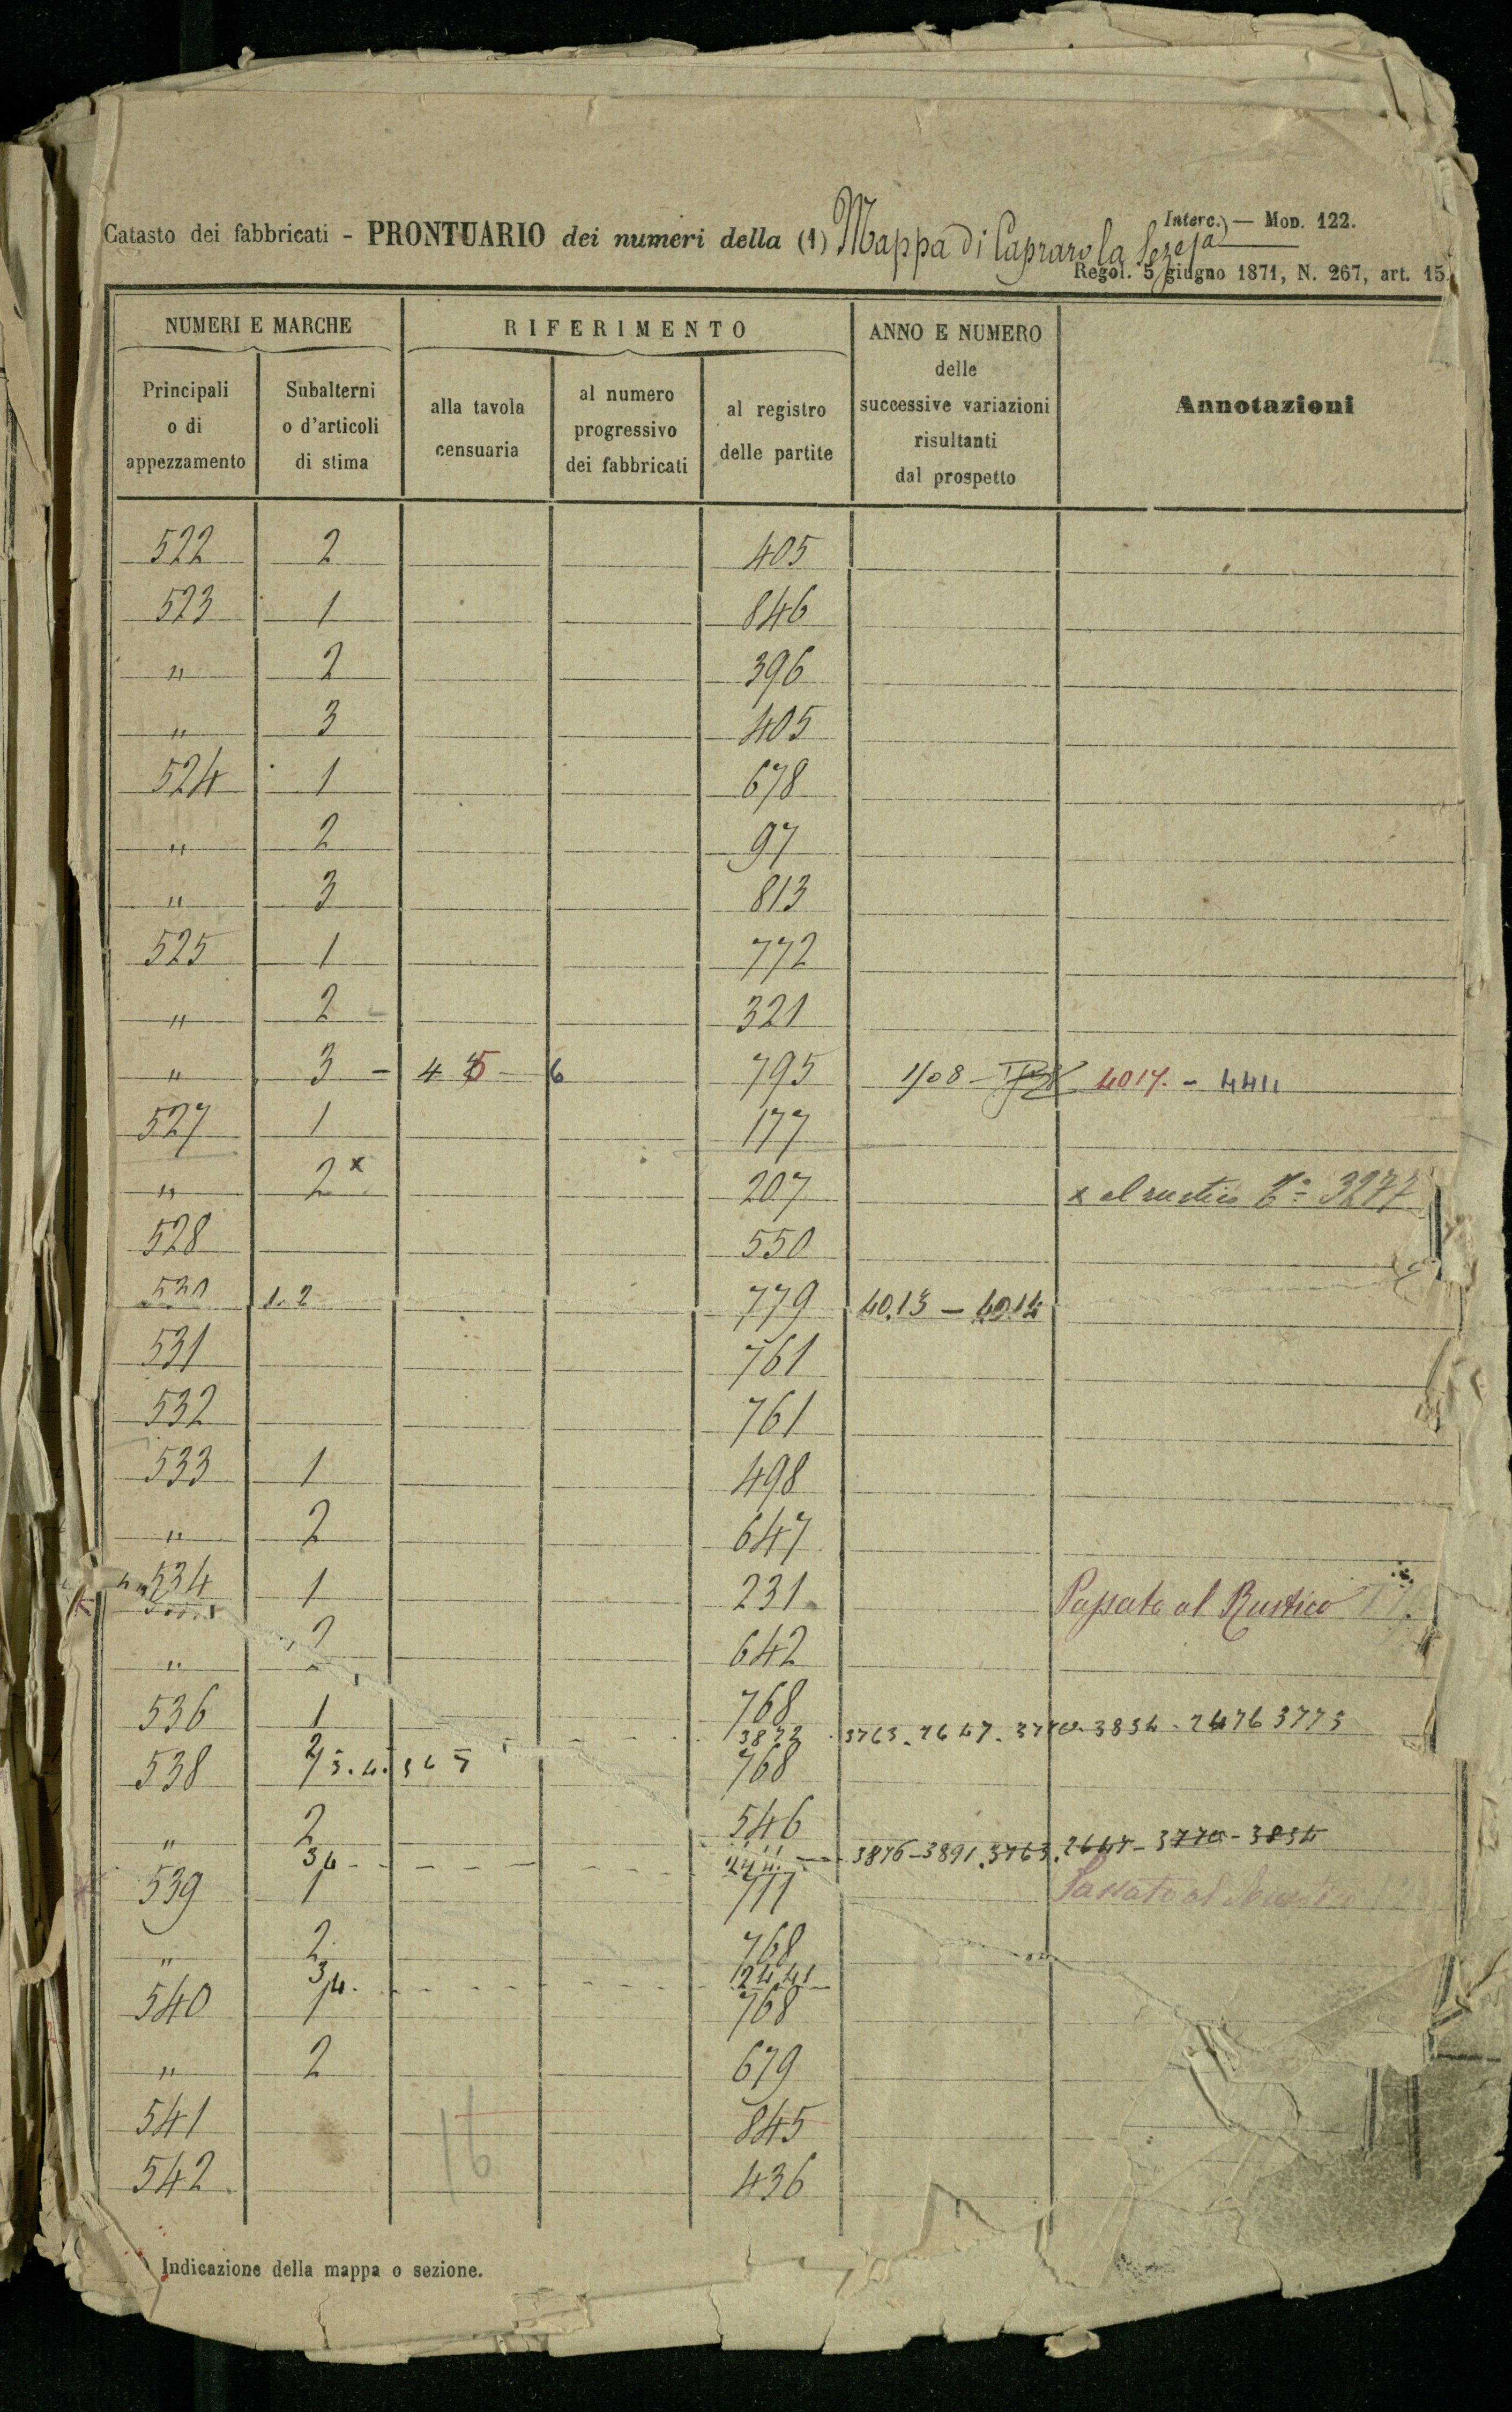 Interc. — Mod. 122.
Catasto dei fabbricati - PRONTUARIO dei numeri della (1) Mappa di Caprarola
Regol. 5 giugno 1871, N. 267, art. 15.
NUMERI E MARCHE
RIFERIMENTO
ANNO E NUMERO delle successive variazioni risultanti dal prospetto
Annotazioni
Principali o di appezzamento
Subalterni o d'articoli di stima
alla tavola censuaria
al numero progressivo dei fabbricati
al registro delle partite
522 2 405
523 1 846
" 2 396
" 3 405
524 1 678
" 2 97
" 3 813
525 1 772
" 2 321
" 3 - 4 5 6 795 1/08 - 4017. - 4411
527 1 177
" 2 x 207 x al rustico 3277
528 550
530 1. 2 779 4013 - 4014
531 761
532 761
533 1 498
" 2 647
534 1 231 Passato al Rustico
" 2 642
536 1 768
2 3. 4. 3872 3763. 2647. 3770 3834 - 2476 3773
538 1 768
" 2 546
3/4 - - - - - 3876 - 3891. 3763. 2647 - 3770 - 3834
539 1 777 Passato al
" 2 768
3/4. - - - - 2441
540 1 768
" 2 679
541 845
542 436
16
Indicazione della mappa o sezione.